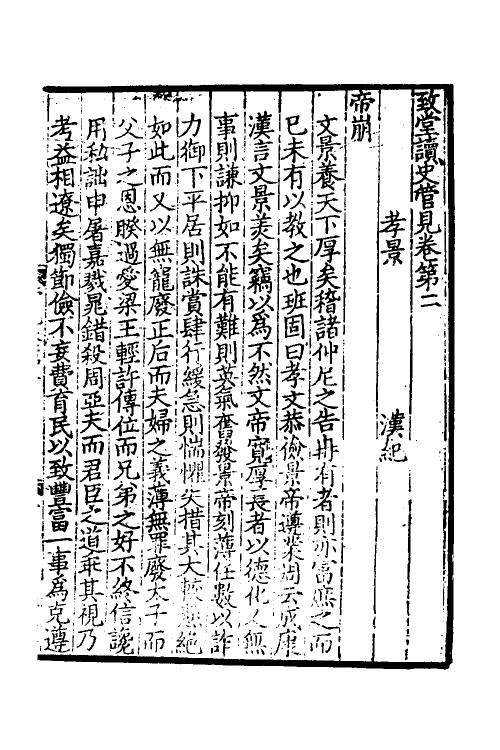 致堂讀史管見卷第二
孝景　漢紀
帝崩
文景養天下厚矣稽諸仲尼之告冉有者則亦富庶之而
已未有以教之也班固曰孝文恭儉景帝遵業周云成康
漢言文景美矣竊以爲不然文帝寬厚長者以德化人無
事則謙抑如不能有難則英氣奮發景帝刻薄任數以詐
力御下平居則誅賞肆行緩急則惴懼失措其大較懸絶
如此而又以無寵廢正后而夫婦之義薄無罪廢太子而
父子之恩睽過愛梁王輕許傳位而兄弟之好不終信讒
用私詘申屠嘉戮晁錯殺周亞夫而君臣之道乖其視乃
考益相遼矣獨節儉不妄費育民以致豐富一事爲克遵